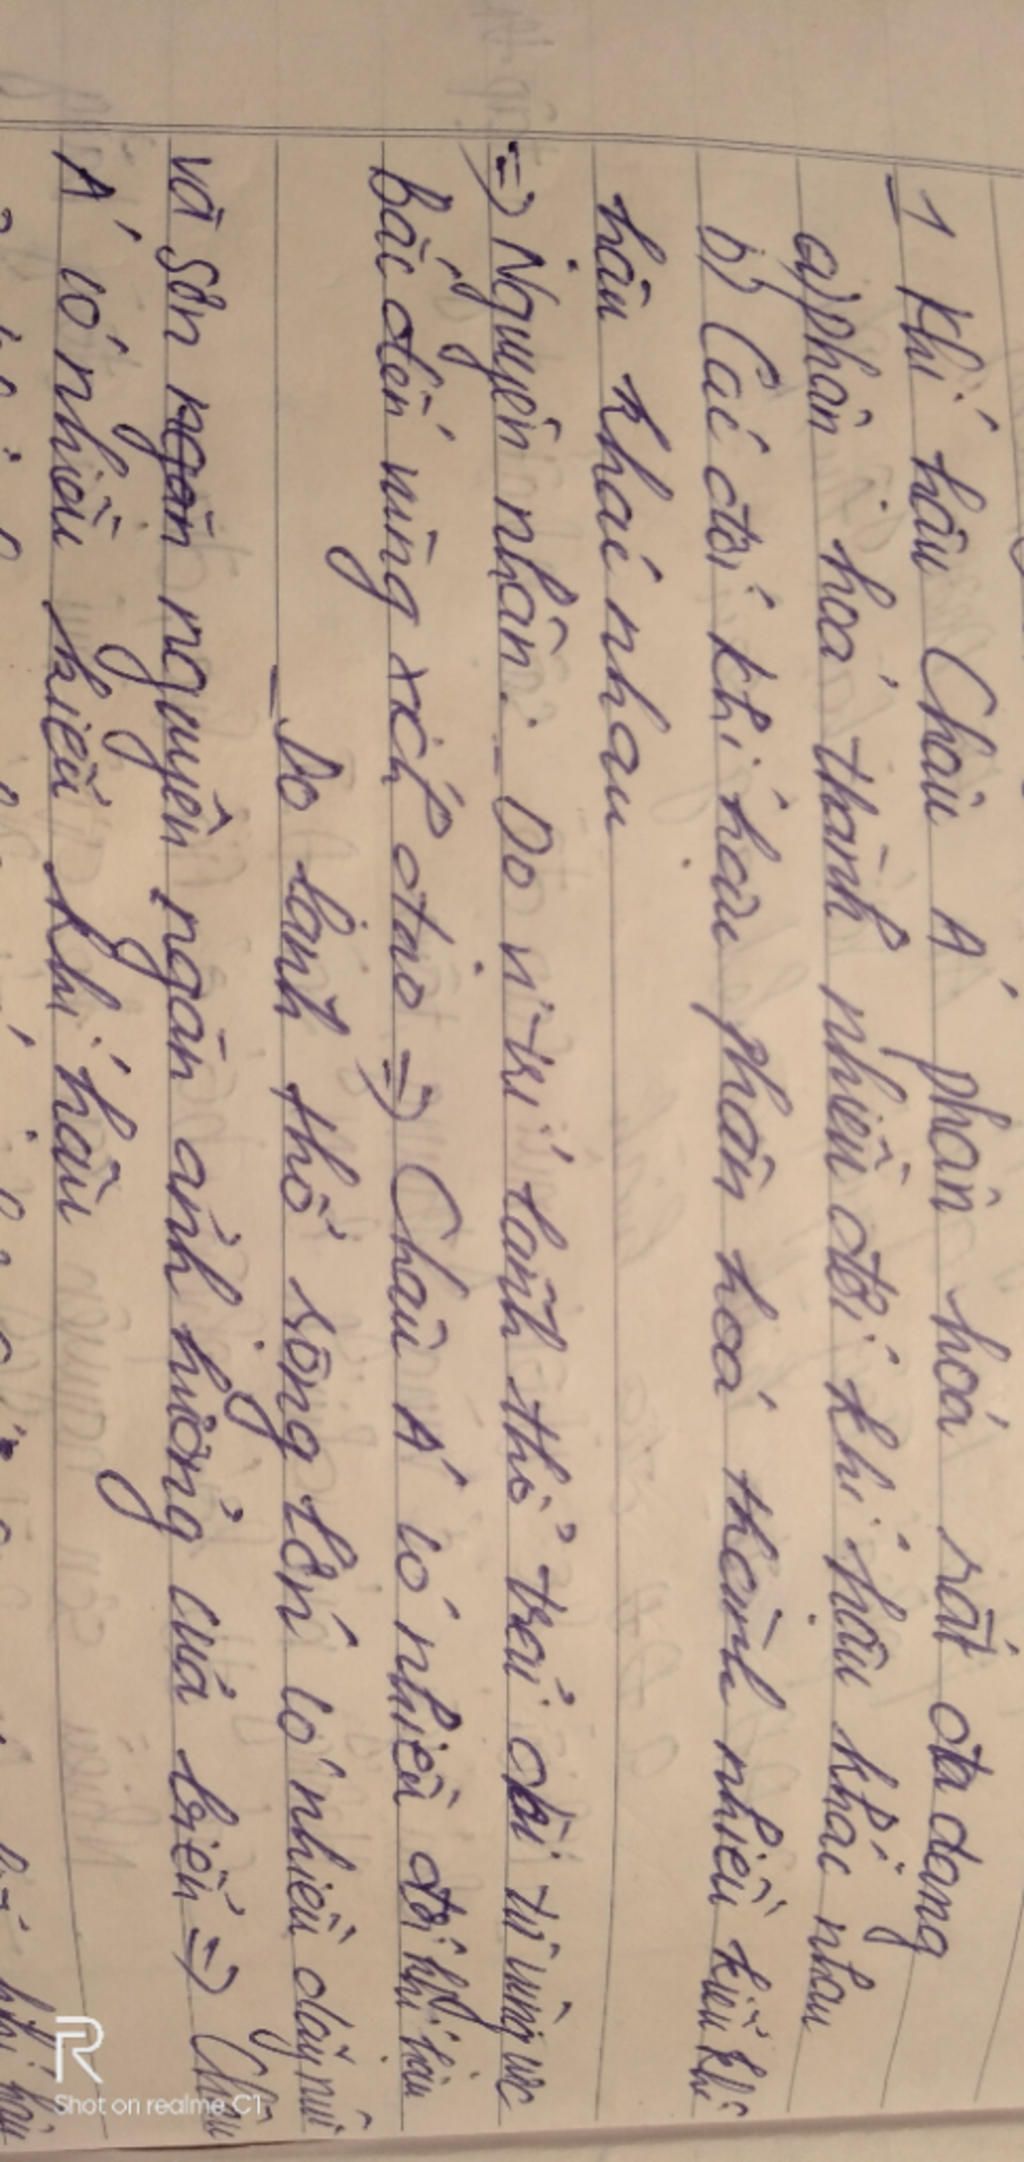 1 Khí hậu Châu Á phân hoá rất đa dạng
a) phân hoá thành nhiều đới khí hậu khác nhau
b) Các đới khí hậu phân hoá thành nhiều kiểu khí
hậu khác nhau
=> Nguyên nhân: - Do vị trí lãnh thổ trải dài từ vùng cực
Bắc đến vùng xích đạo => Châu Á có nhiều đới khí hậu
- Do lãnh thổ rộng lớn có nhiều dãy núi
và sơn nguyên ngăn ảnh hưởng của biển => Châu
Á có nhiều kiểu khí hậu
Shot on realme C1